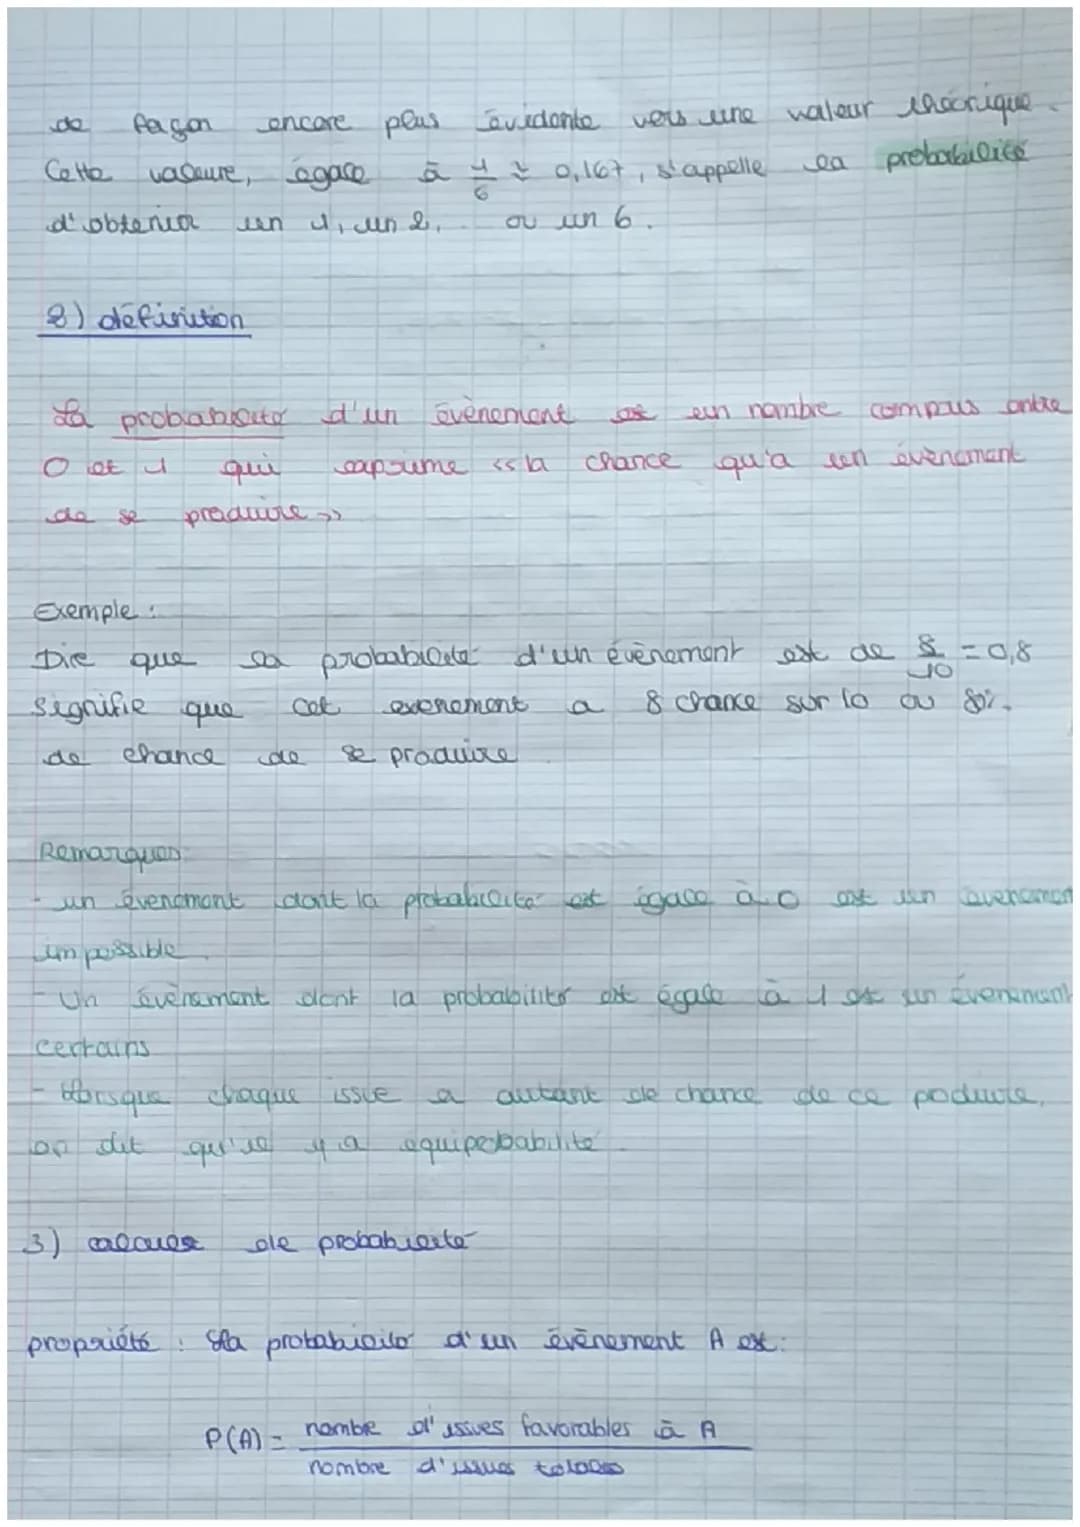 de façon encore plus évidante vers une valeur théorique.
Cette valeure, égale à 1/6 ≈ 0,167, s'appelle la probabilité
d'obtenir un 1, un 2, .. ou un 6.
2) définition
La probabilité d'un évènement est un nombre compris entre
0 et 1 qui exprime << la chance qu'a un évènement
de se produire >>
Exemple :
Dire que la probabilité d'un évènement est de 8/10 = 0,8
signifie que cet evenement a 8 chance sur 10 ou 80%
de chance de se produire
Remarques
- un évenement dont la probabilité est égale à 0 est un évenemen
impossible.
- Un évènement dont la probabilité est égale à 1 est un évenement
certains
- lorsque chaque issie a autant de chance de ce poduire,
on dit qu'il y a équipobabilité.
3) calcules de probabilité
propriété : La probabilité d'un évènement A est:
P(A) = nombre d'issues favorables à A
nombre d'issues totales